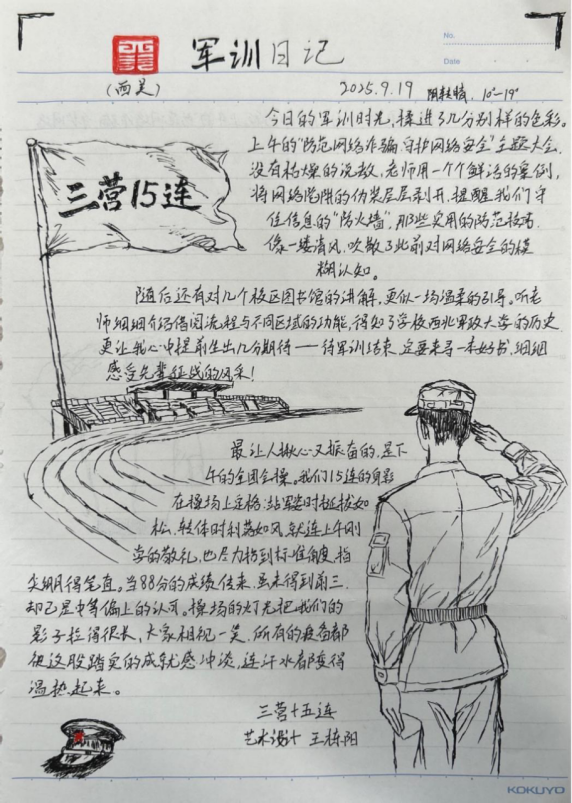 No.
Date
军训日记
(西昊)
2025.9.19 阴转晴, 10°-19°
今日的军训时光,揉进了几分别样的色彩。
上午的“防范网络诈骗,守护网络安全”主题大会,
没有枯燥的说教,老师用一个个鲜活的案例,
将网络陷阱的伪装层层剥开,提醒我们守
住信息的“防火墙”,那些实用的防范技巧,
像一缕清风,吹散了此前对网络安全的模
糊认知。
三营15连
随后还有对几个校区图书馆的讲解,更似一场温柔的引导。听老
师细细介绍借阅流程与不同区域的功能,得知了学校西北军政大学的历史
更让我心中提前生出几分期待——待军训结束,定要来寻一本好书,细细
感受先辈征战的风采!
最让人揪心又振奋的,是下
午的全团会操。我们15连的身影
在操场上定格:站军姿时挺拔如
松,转体时利落如风,就连上午刚
学的敬礼,也尽力抬到标准角度,指
尖绷得笔直。当88分的成绩传来,虽未得到前三,
却已是中等偏上的认可。操场的灯光把我们的
影子拉得很长,大家相视一笑,所有的疲惫都
被这股踏实的成就感冲淡,连汗水都变得
温热起来。
三营十五连
艺术设计 王栋阳
KOKUYO